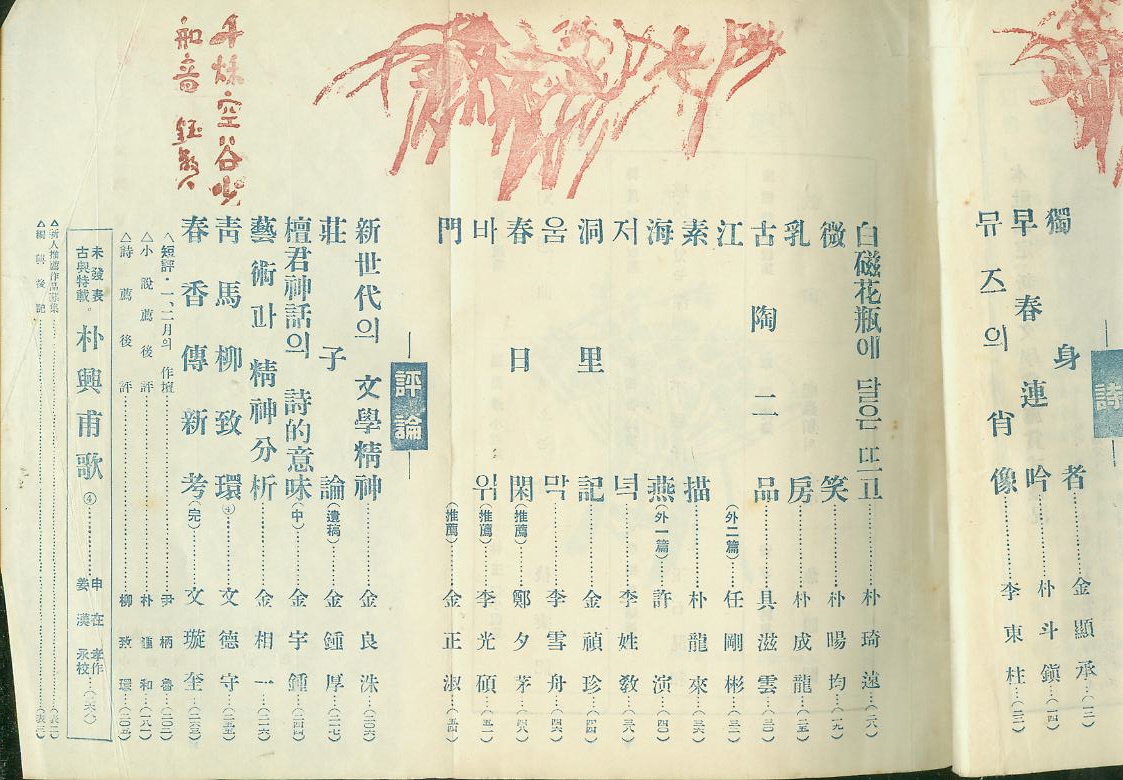 詩
獨身者 金顯承
早春連吟 朴斗鎭
뮤즈의 肖像 李東柱
白磁花瓶에 달은 뜨고 朴琦遠
微笑 朴暘均
乳房 朴成龍
古陶二品 具滋雲
江 (外二篇) 任剛彬
素描 朴龍來
海燕 (外一篇) 許演
저녁 李姓敎
洞里記 金禎珍
움막 李雪舟
春日閑 (推薦) 鄭夕茅
바위 (推薦) 李光碩
門 (推薦) 金正淑
評論
新世代의 文學精神 金良洙
莊子論 (遺稿) 金鍾厚
檀君神話의 詩的意味 (中) 金宇鍾
藝術과 精神分析 金相一
靑馬柳致環 ④ 文德守
春香傳新考 (完) 文璇奎
短評・一、二月의 作壇 尹柄魯
△小說薦後評 朴鍾和
△詩薦後評 柳致環
未發表
古典特載。
朴興甫歌 ④ 申在孝作
姜漢永校
△新人推薦作品募集
△編輯後記